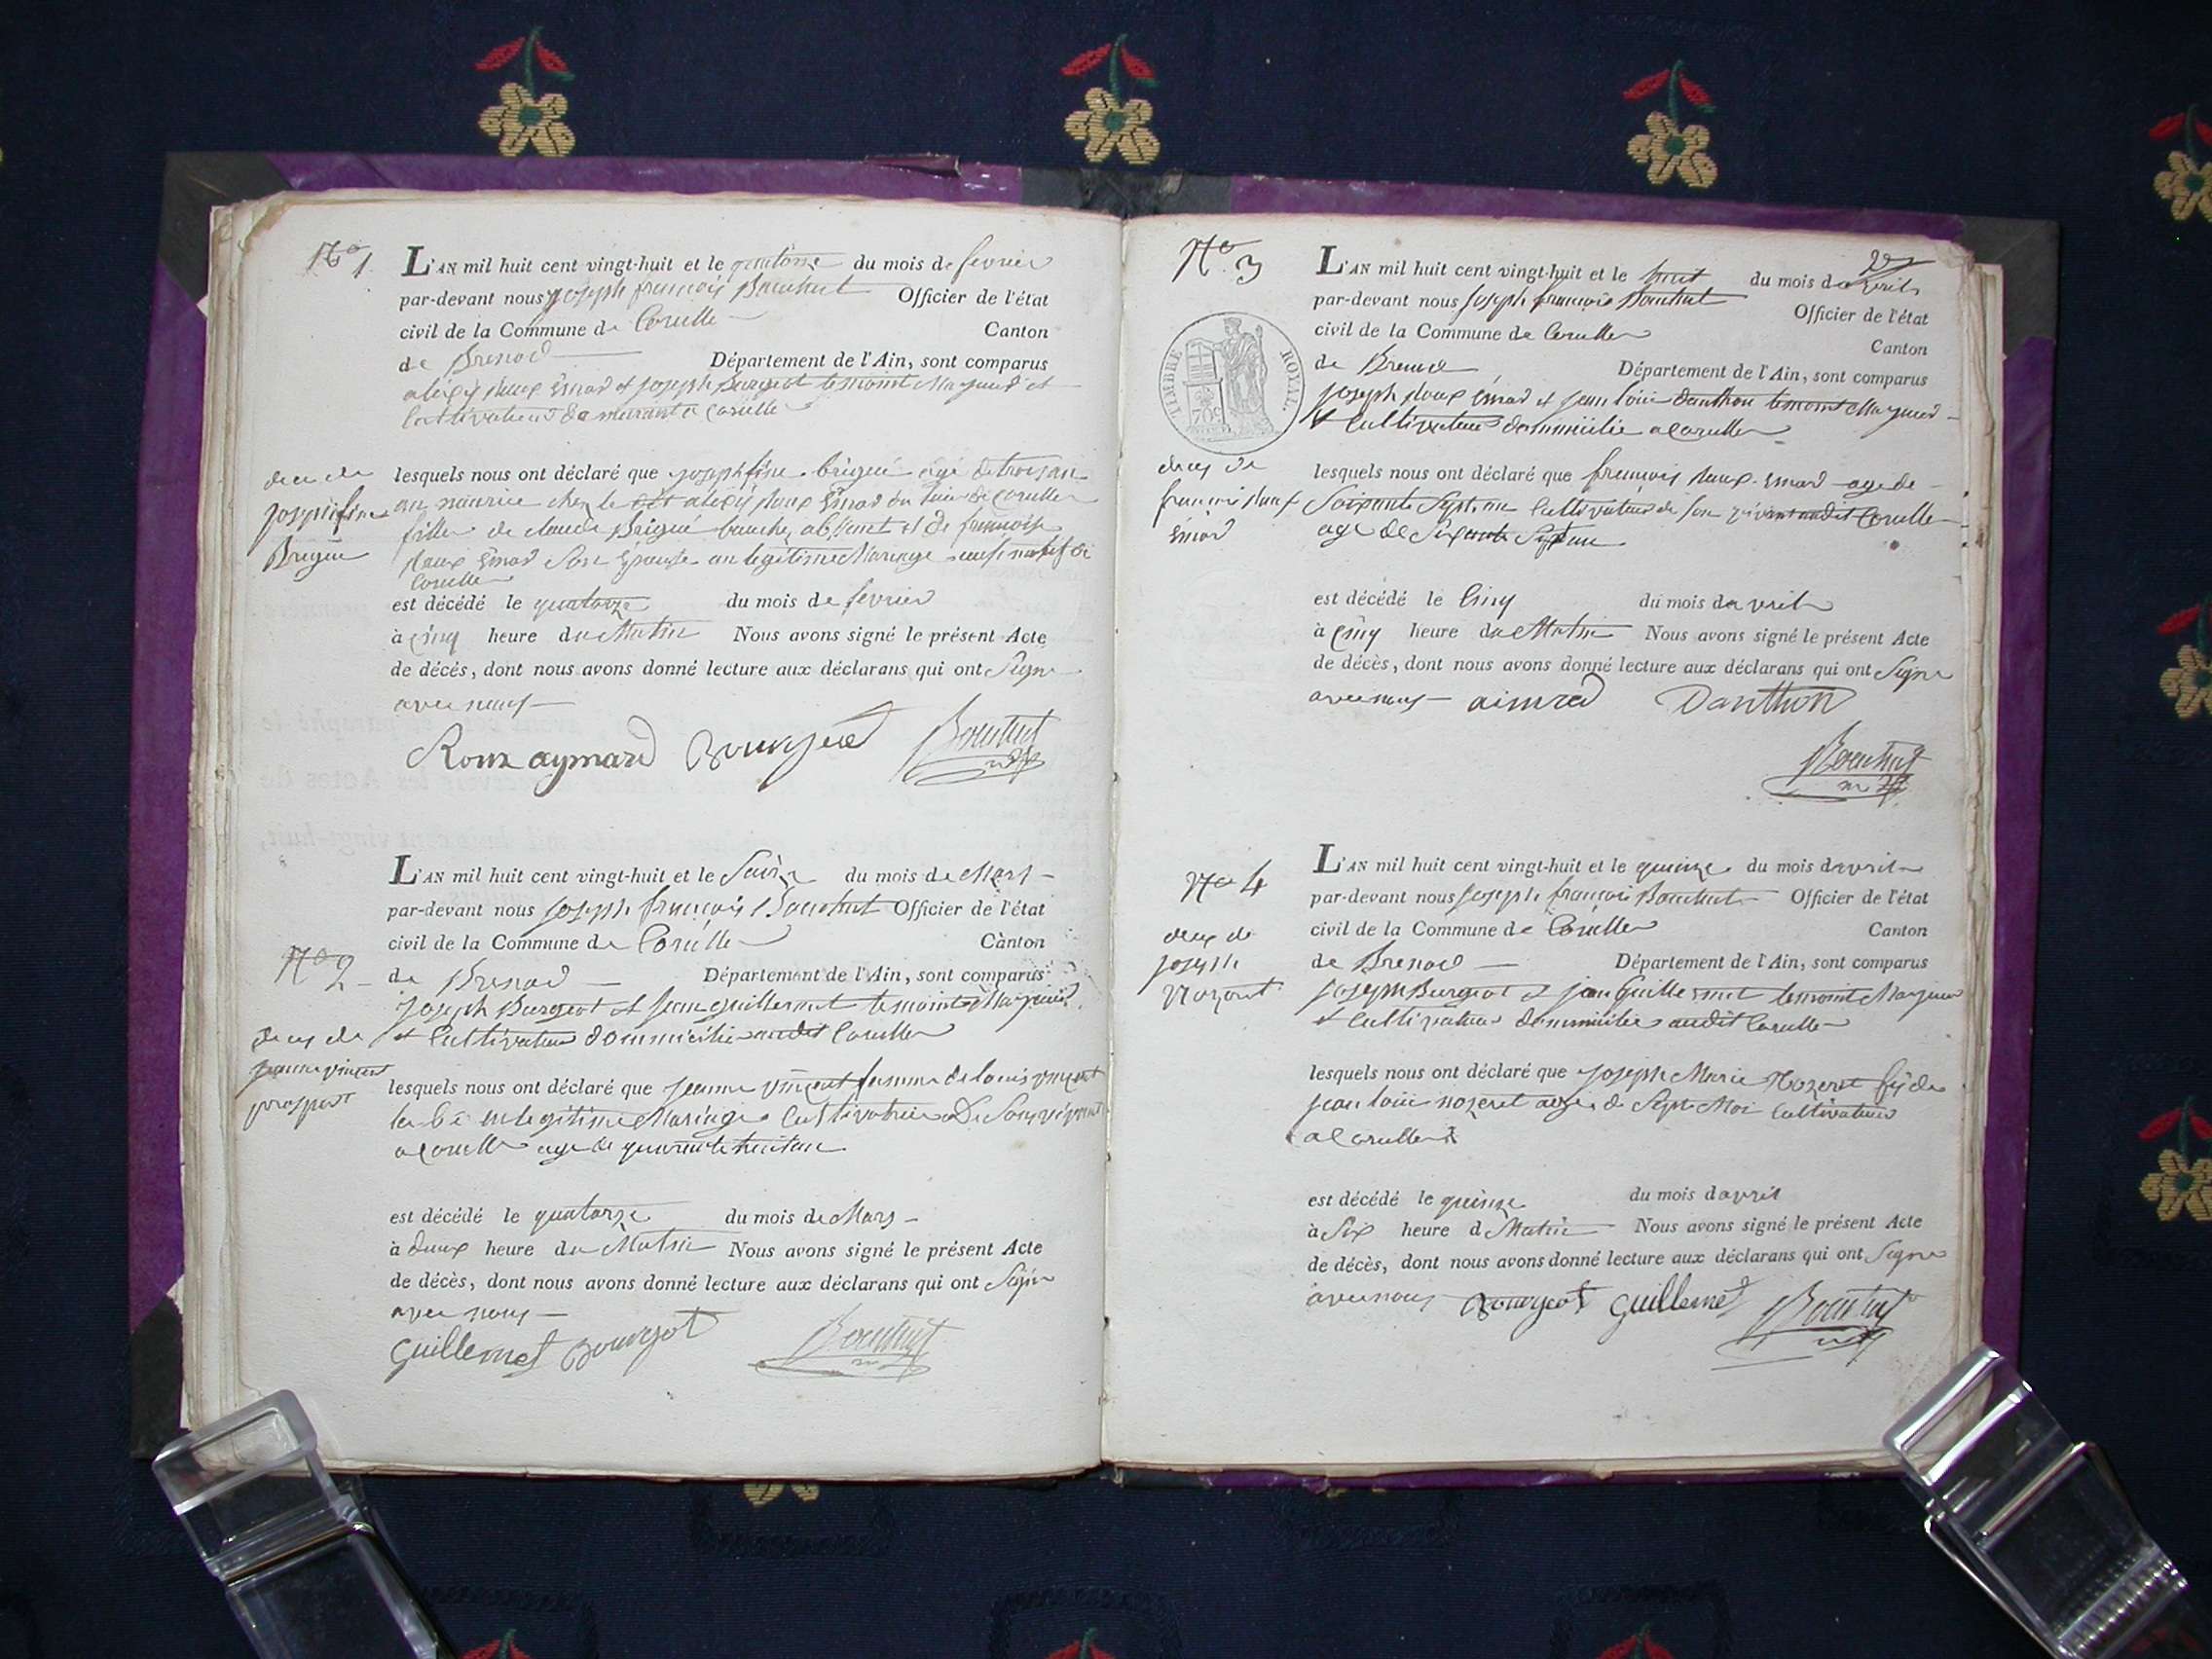 No 1
L'AN mil huit cent vingt-huit et le quatorze du mois de fevrier
par-devant nous joseph francois Bouchut Officier de l'état
civil de la Commune de Corcelle Canton
de Brenod Département de l'Ain, sont comparus
et joseph Burgeot temoint Majeurs et
Cultivateurs a Corcelle
deces de
josephfine
Brigue
lesquels nous ont déclaré que josephfine brigue age de trois an
an nourice chez le
fille de claude Brigué absent et de francoise
son Epouse an legitime Mariage
Corcelle
est décédé le quatorze du mois de fevrier
à cinq heure du Matin Nous avons signé le présent Acte
de décés, dont nous avons donné lecture aux déclarans qui ont Signe
avec nous
Roux aymard Bourgeot Bouchut
No 2
L'AN mil huit cent vingt-huit et le Seize du mois de Mars
par-devant nous joseph francois Bouchut Officier de l'état
civil de la Commune de Corcelle Canton
de Brenod Département de l'Ain, sont comparus
joseph Burgeot et jean guillermet temoint Majeurs
et Cultivateur dommicilie audit Corcelle
deces de
jeanne vincent
lesquels nous ont déclaré que jeanne vincent femme de louis vincent
en legitime Mariage Cultivatrice De Son vivant
a Corcelle age de quarante huit an
est décédé le quatorze du mois de Mars
à deux heure du Matin Nous avons signé le présent Acte
de décès, dont nous avons donné lecture aux déclarans qui ont Signe
avec nous
Guillermet Bourgeot Bouchut
No 3
L'AN mil huit cent vingt-huit et le huit du mois davril
par-devant nous joseph francois Bouchut Officier de l'état
civil de la Commune de Corcelle Canton
de Brenod Département de l'Ain, sont comparus
joseph Roux Emard et jean louis danthon temoint Majeurs
et Cultivateurs dommicilie a Corcelle
TIMBRE ROYAL
70c
deces de
francois Roux
Emard
lesquels nous ont déclaré que francois Roux Emard age de
Soixante Sept an Cultivateur de son vivant audit Corcelle
age de Soixante Sept an
est décédé le Cinq du mois davril
à Cinq heure du Matin Nous avons signé le présent Acte
de décès, dont nous avons donné lecture aux déclarans qui ont Signe
avec nous aimard Danthon
Bouchut
No 4
L'AN mil huit cent vingt-huit et le quinze du mois davril
par-devant nous joseph francois Bouchut Officier de l'état
civil de la Commune de Corcelle Canton
de Brenod Département de l'Ain, sont comparus
joseph Burgeot et jean Guillermet temoint Majeurs
et Cultivateurs dommicilie audit Corcelle
deces de
joseph
Nozeret
lesquels nous ont déclaré que joseph Marie Nozeret fis de
jean louis nozeret age de Sept Moi Cultivateur
a Corcelle
est décédé le quinze du mois davril
à Six heure d Matin Nous avons signé le présent Acte
de décès, dont nous avons donné lecture aux déclarans qui ont Signe
avec nous Bourgeot Guillermet Bouchut